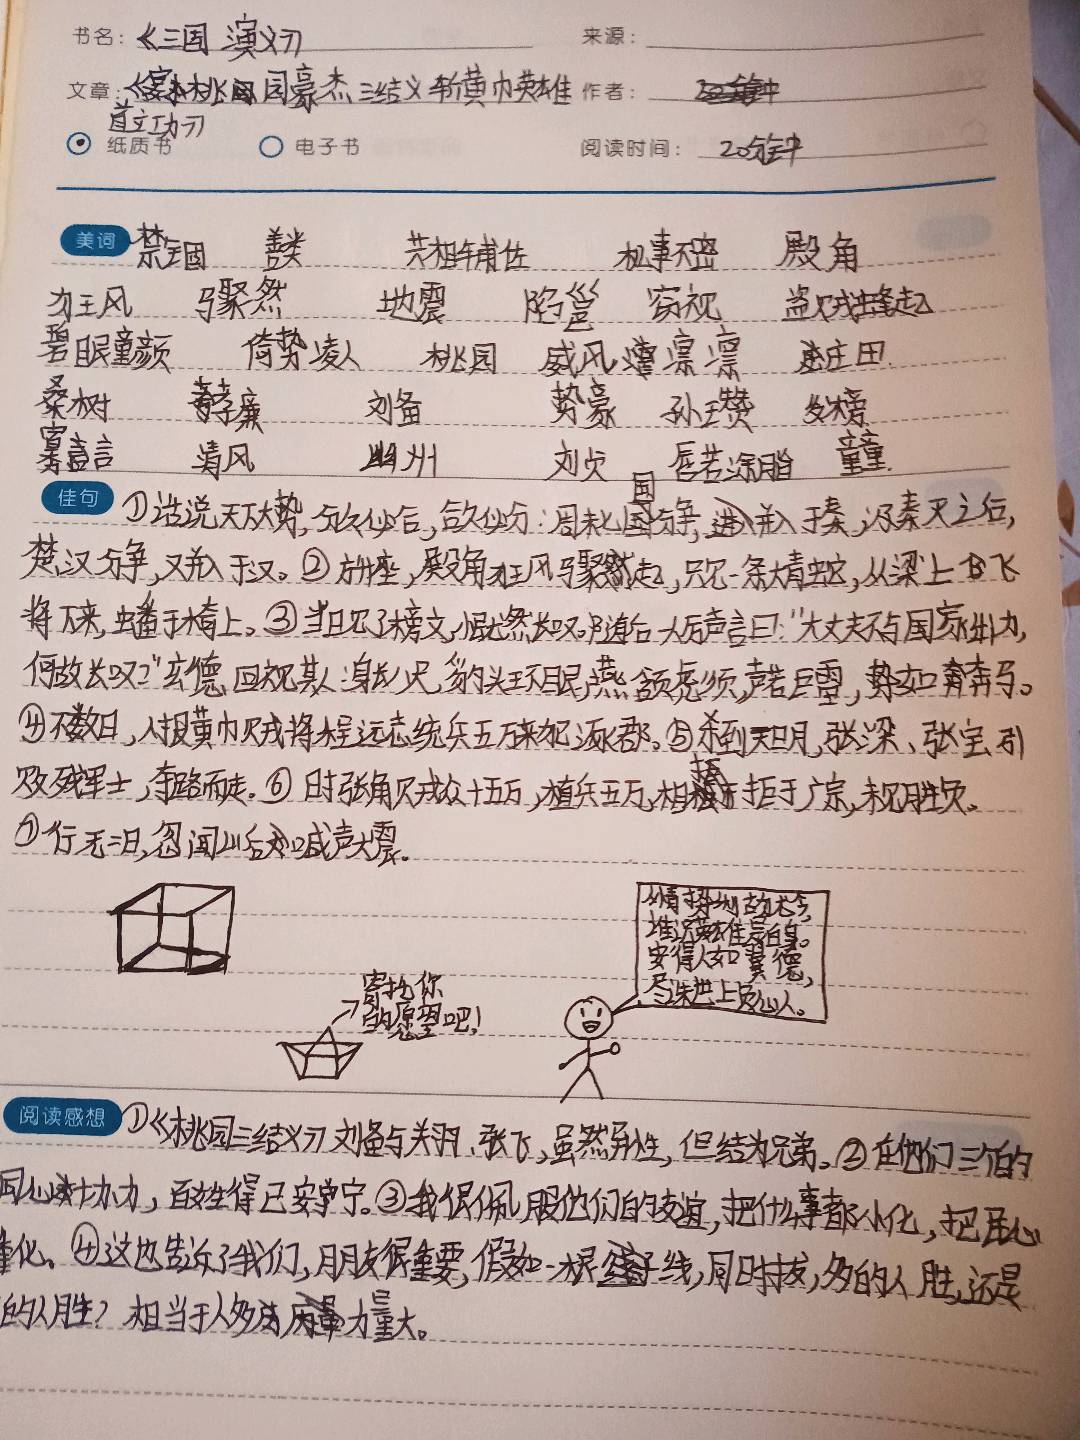 书名：《三国演义》 来源：
文章：《宴桃园豪杰三结义 斩黄巾英雄 作者：
首立功》
纸质书 电子书 阅读时间：20分钟
美词 禁锢 善类 共相辅佐 机事不密 殿角
狂风 骤然 地震 陷邕 窃视 盗贼蜂起
碧眼童颜 倚势凌人 桃园 威风凛凛 庄田
桑树 孝廉 刘备 势豪 孙王赞 发榜
寡言 清风 幽州 刘焉 唇若涂脂 童童
佳句 ①话说天下大势，分久必合，合久必分：周末七国分争，并入于秦，及秦灭之后，
楚汉分争，又并入于汉。②方升座，殿角狂风骤起，只见一条大青蛇，从梁上飞
将下来，蟠于椅上。③当日见了榜文，慨然长叹。随后一人厉声言曰："大丈夫不与国家出力，
何故长叹？"玄德回视其人：身长八尺，豹头环眼，燕颔虎须，声若巨雷，势如奔马。
④不数日，人报黄巾贼将程远志统兵五万来犯涿郡。⑤杀到天明，张梁、张宝引
败残军士，夺路而走。⑥时张角贼众十五万，植兵五万，相拒于广宗，未见胜负。
⑦行无二日，忽闻山后喊声大震。
人情势利古犹今，
谁识英雄是白身。
安得人如翼德，
尽诛世上负心人。
寄托你
的愿望吧！
阅读感想 ①《桃园三结义》刘备与关羽、张飞，虽然异性，但结为兄弟。②在他们三个的
同心协力，百姓得已安宁。③我很佩服他们的友谊，把什么事都小化，把心
化。④这也告诉了我们，朋友很重要，假如一根绳子线，同时拔，多的人胜，还是
的人胜？相当于人多力量大。